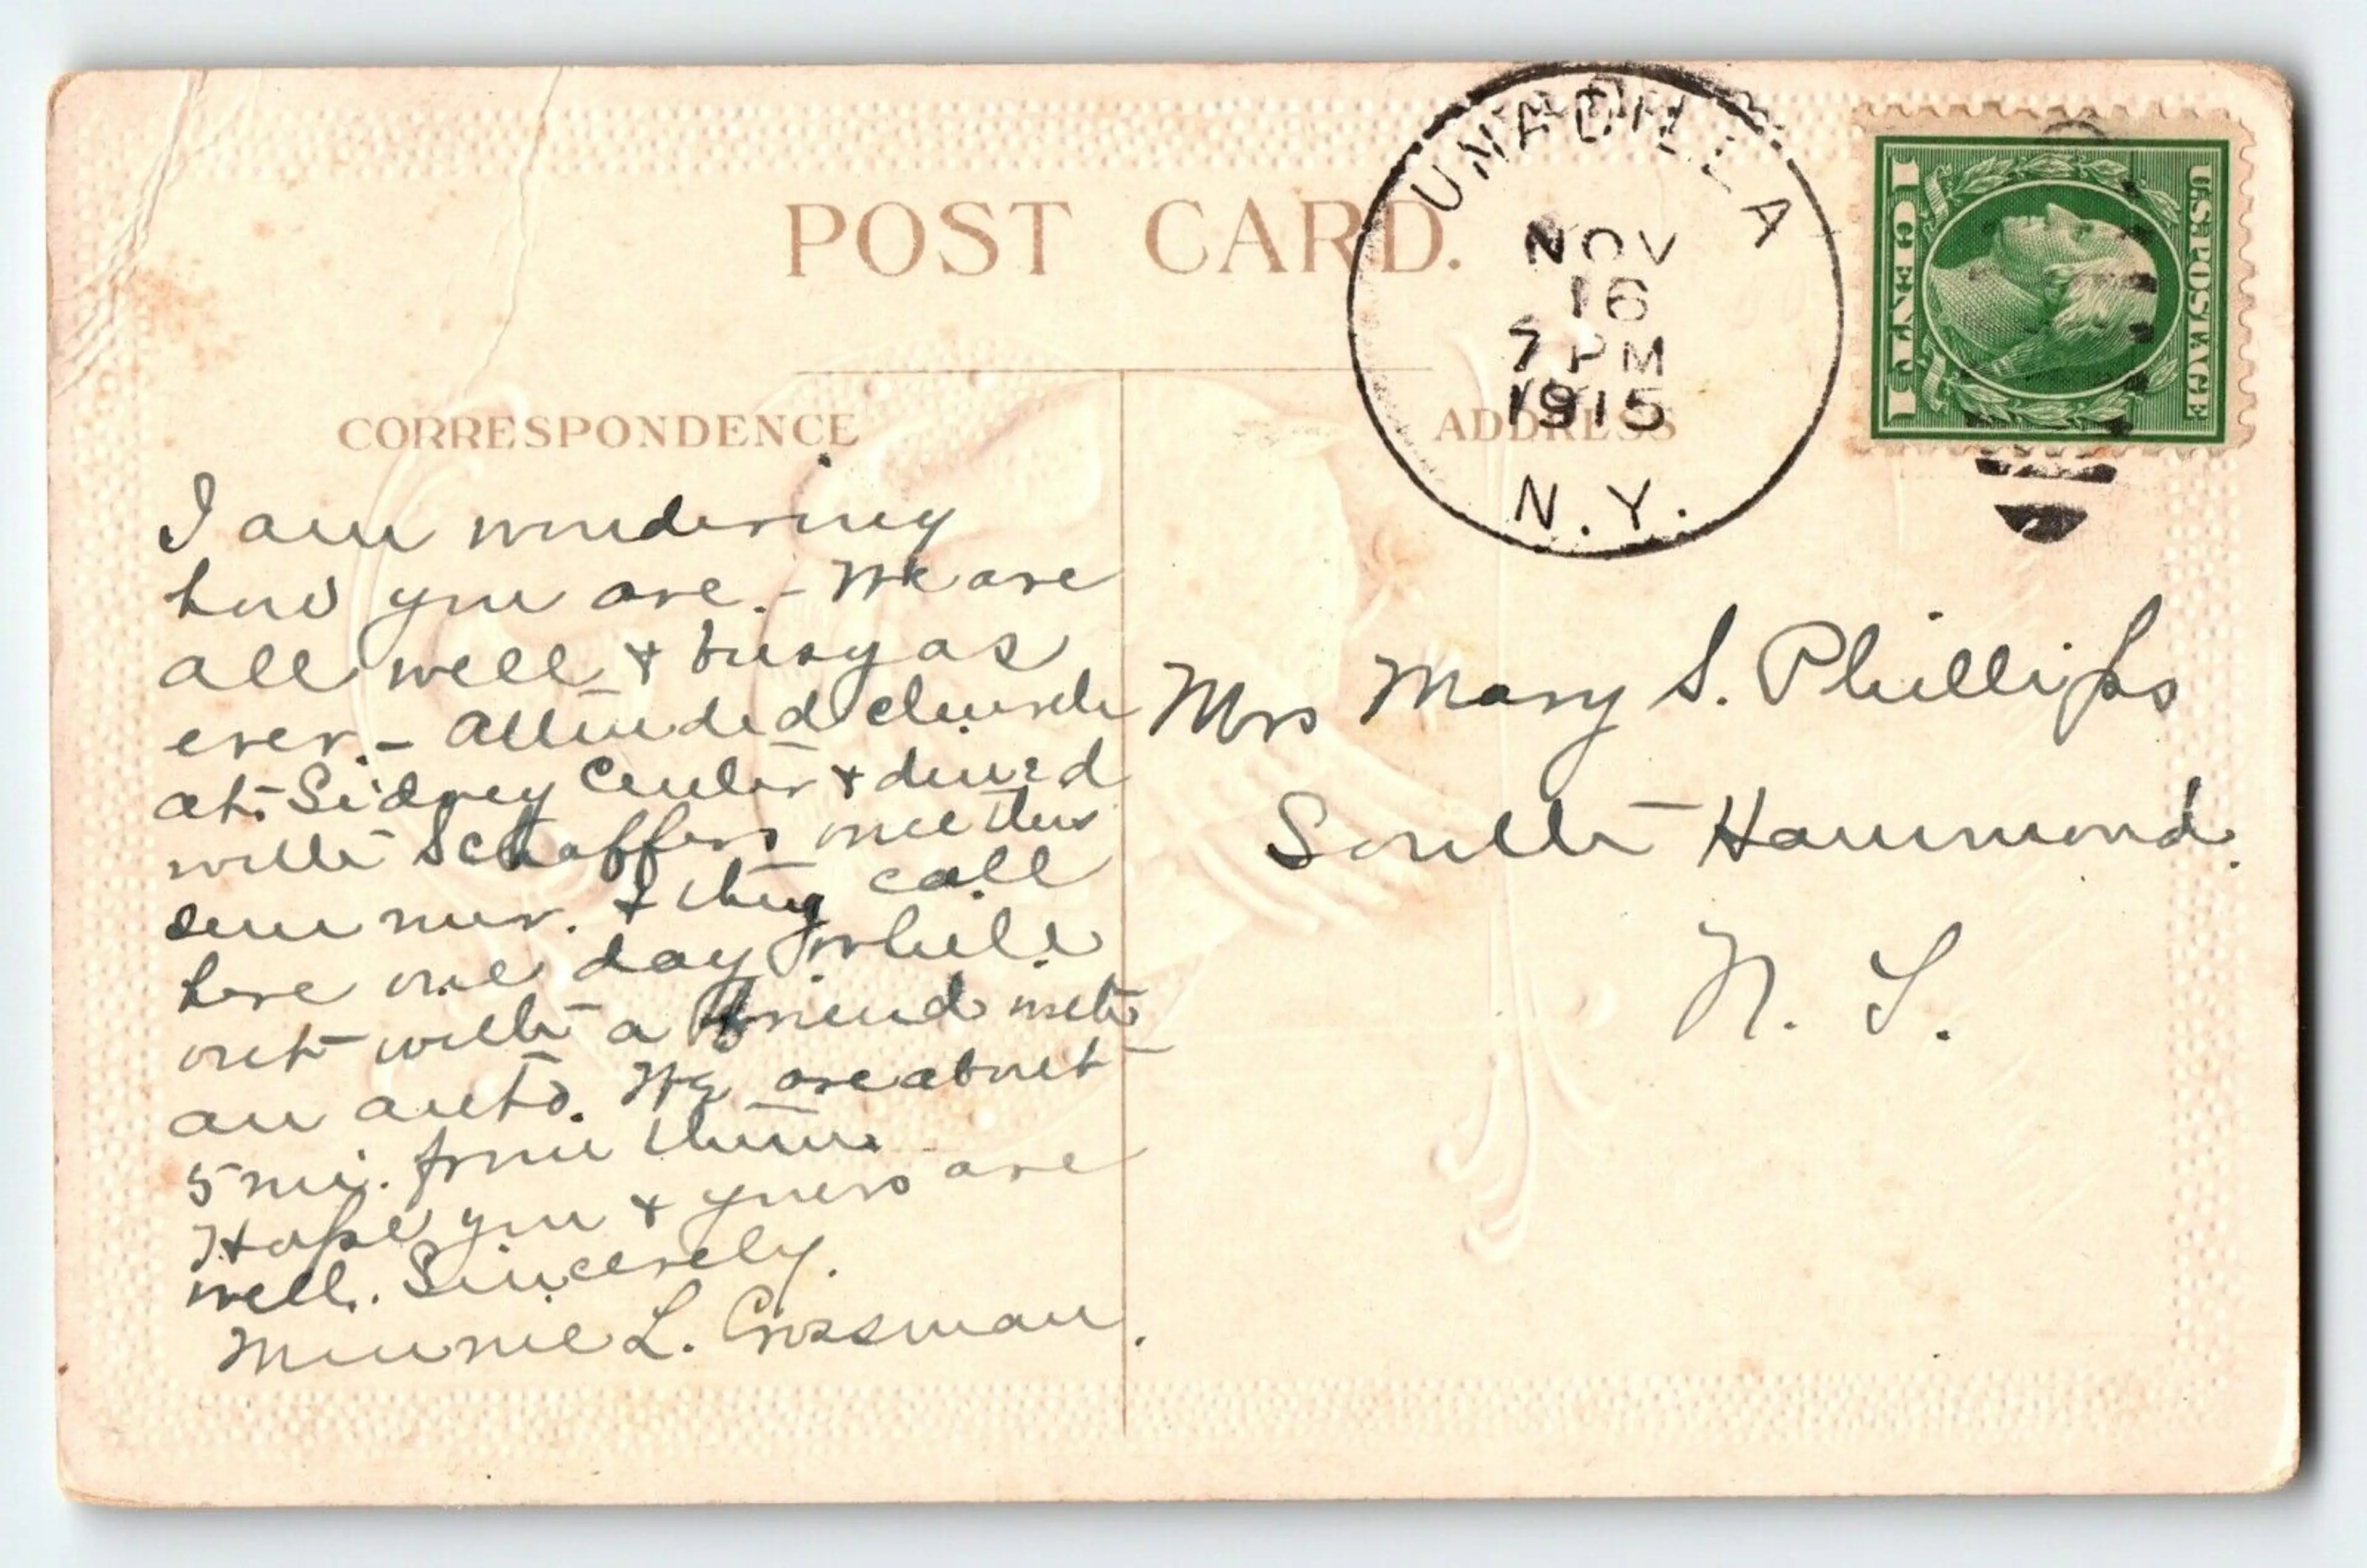 POST CARD.
UNADILLA
NOV
16
7 PM
1915
N.Y.
U.S. POSTAGE
1 CENT 1
CORRESPONDENCE
ADDRESS
I am wondering
how you are. - We are
all well & busy as
ever. - Attended church
at Sidney Center & dined
with Schaffers once this
summer. & they call
here one day while
out with a friend with
an auto. We are about
5 mi. from them.
Hope you & yours are
well. Sincerely.
Minnie L. Crossman.
Mrs Mary S. Phillips
South Hammond.
N. Y.